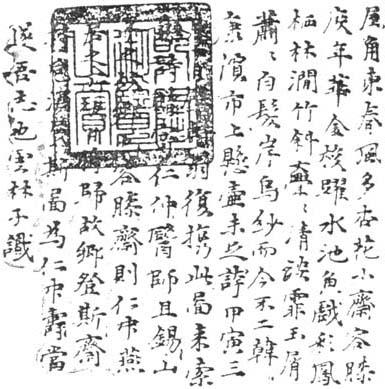 屋角東風多杏花小齋容膝
度年華金梭躍水池魚戲彩鳳
栖林澗竹斜亹〻清談霏玉屑
蕭〻白髮岸烏紗而今不二韓
康價市上懸壺未足誇甲寅三
翁復携此圖來索
仁仲醫師且錫山
容膝齋則仁仲燕
歸故鄉登斯齋
斯圖為仁仲壽當
遂吾志也雲林子識